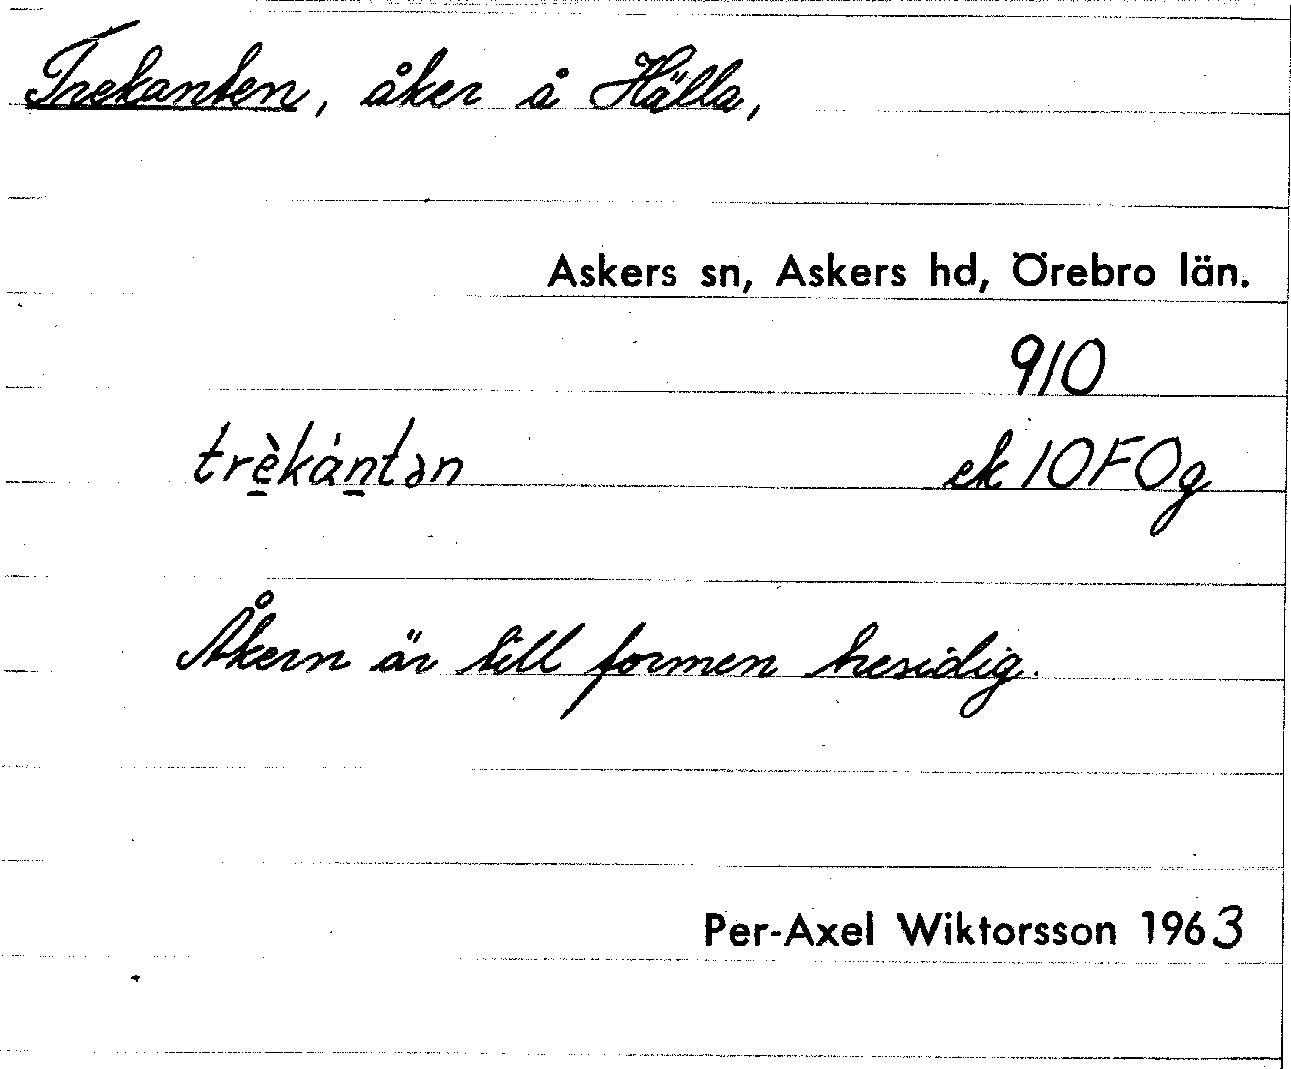 Trekanten, åker å Hälla,
Askers sn, Askers hd, Örebro län.
910
trè̠kán̠tən ek 10F0g
Åkern är till formen tresidig.
Per-Axel Wiktorsson 1963